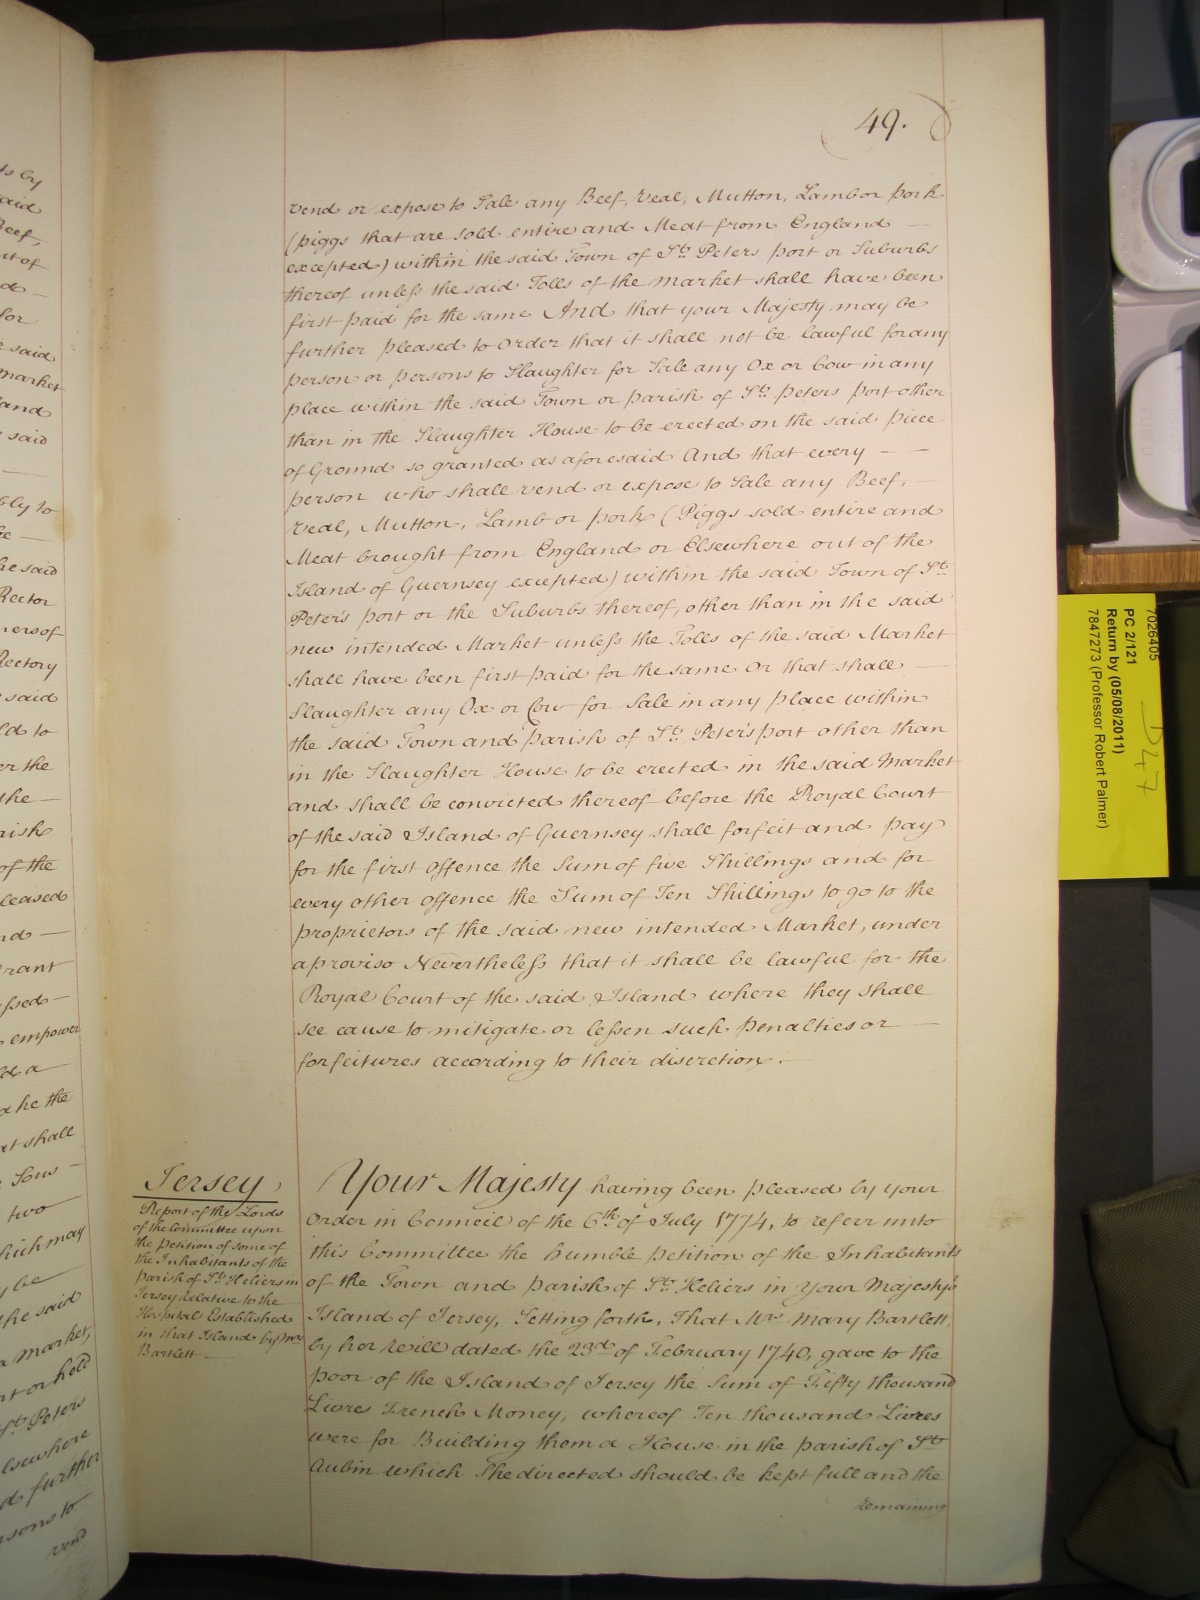 49.
vend or expose to Sale any Beef, Veal, Mutton, Lamb or pork
(piggs that are sold entire and Meat from England
excepted) within the said Town of St. Peters port or Suburbs
thereof unless the said Tolls of the market shall have been
first paid for the same And that your Majesty may be
further pleased to order that it shall not be lawful for any
person or persons to Slaughter for Sale any Ox or Cow in any
place within the said Town or parish of St. peters port other
than in the Slaughter House to be erected on the said piece
of Ground so granted as aforesaid And that every
person who shall vend or expose to Sale any Beef,
Veal, Mutton, Lamb or pork (Piggs sold entire and
Meat brought from England or Elsewhere out of the
Island of Guernsey excepted) within the said Town of St.
Peter's port or the Suburbs thereof, other than in the said
new intended Market unless the Tolls of the said Market
shall have been first paid for the same or that shall
Slaughter any Ox or Cow for Sale in any place within
the said Town and parish of St. Peter's port other than
in the Slaughter House to be erected in the said Market
and shall be convicted thereof before the Royal Court
of the said Island of Guernsey shall forfeit and pay
for the first offence the Sum of five Shillings and for
every other offence the Sum of Ten Shillings to go to the
proprietors of the said new intended Market, under
a proviso Nevertheless that it shall be lawful for the
Royal Court of the said Island where they shall
see cause to mitigate or lessen such penalties or
forfeitures according to their discretion.
Jersey
Report of the Lords
of the Committee upon
the petition of some of
the Inhabitants of the
parish of St. Heliers in
Jersey relative to the
Hospital Established
in that Island by Mrs
Bartlett
Your Majesty having been pleased by your
Order in Council of the 6th of July 1774, to referr unto
this Committee the humble petition of the Inhabitants
of the Town and parish of St. Heliers in Your Majesty's
Island of Jersey, Setting forth, That Mrs Mary Bartlett,
by her Will dated the 23rd of February 1740, gave to the
poor of the Island of Jersey the Sum of Fifty thousand
Livres French Money, whereof Ten thousand Livres
were for Building them a House in the parish of St
Aubin which She directed should be kept full and the
remaining
7026405
PC 2/121
Return by (05/08/2011)
7847273 (Professor Robert Palmer)
D47
ts by
said
Beef,
ut of
for
e said
market
and
said
bly to
he said
Rector
ners of
Rectory
said
ld to
er the
the
rish
of the
leased
nd
rant
ssed
empower
ld a
ake the
at shall
Sous
two
hich may
y be
the said
a market,
rt or hold
St. Peters
lsewhere
d further
rsons to
vend